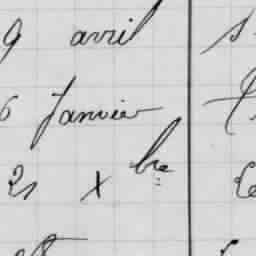 9 avril
6 Janvier
21 x bre